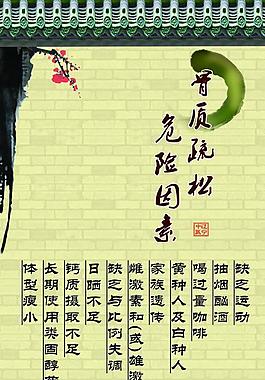 骨质疏松
危险因素
缺乏运动
抽烟酗酒
喝过量咖啡
黄种人及白种人
家族遗传
雌激素和(或)雄激
缺乏与比例失调
日晒不足
钙质摄取不足
长期使用类固醇
体型瘦小